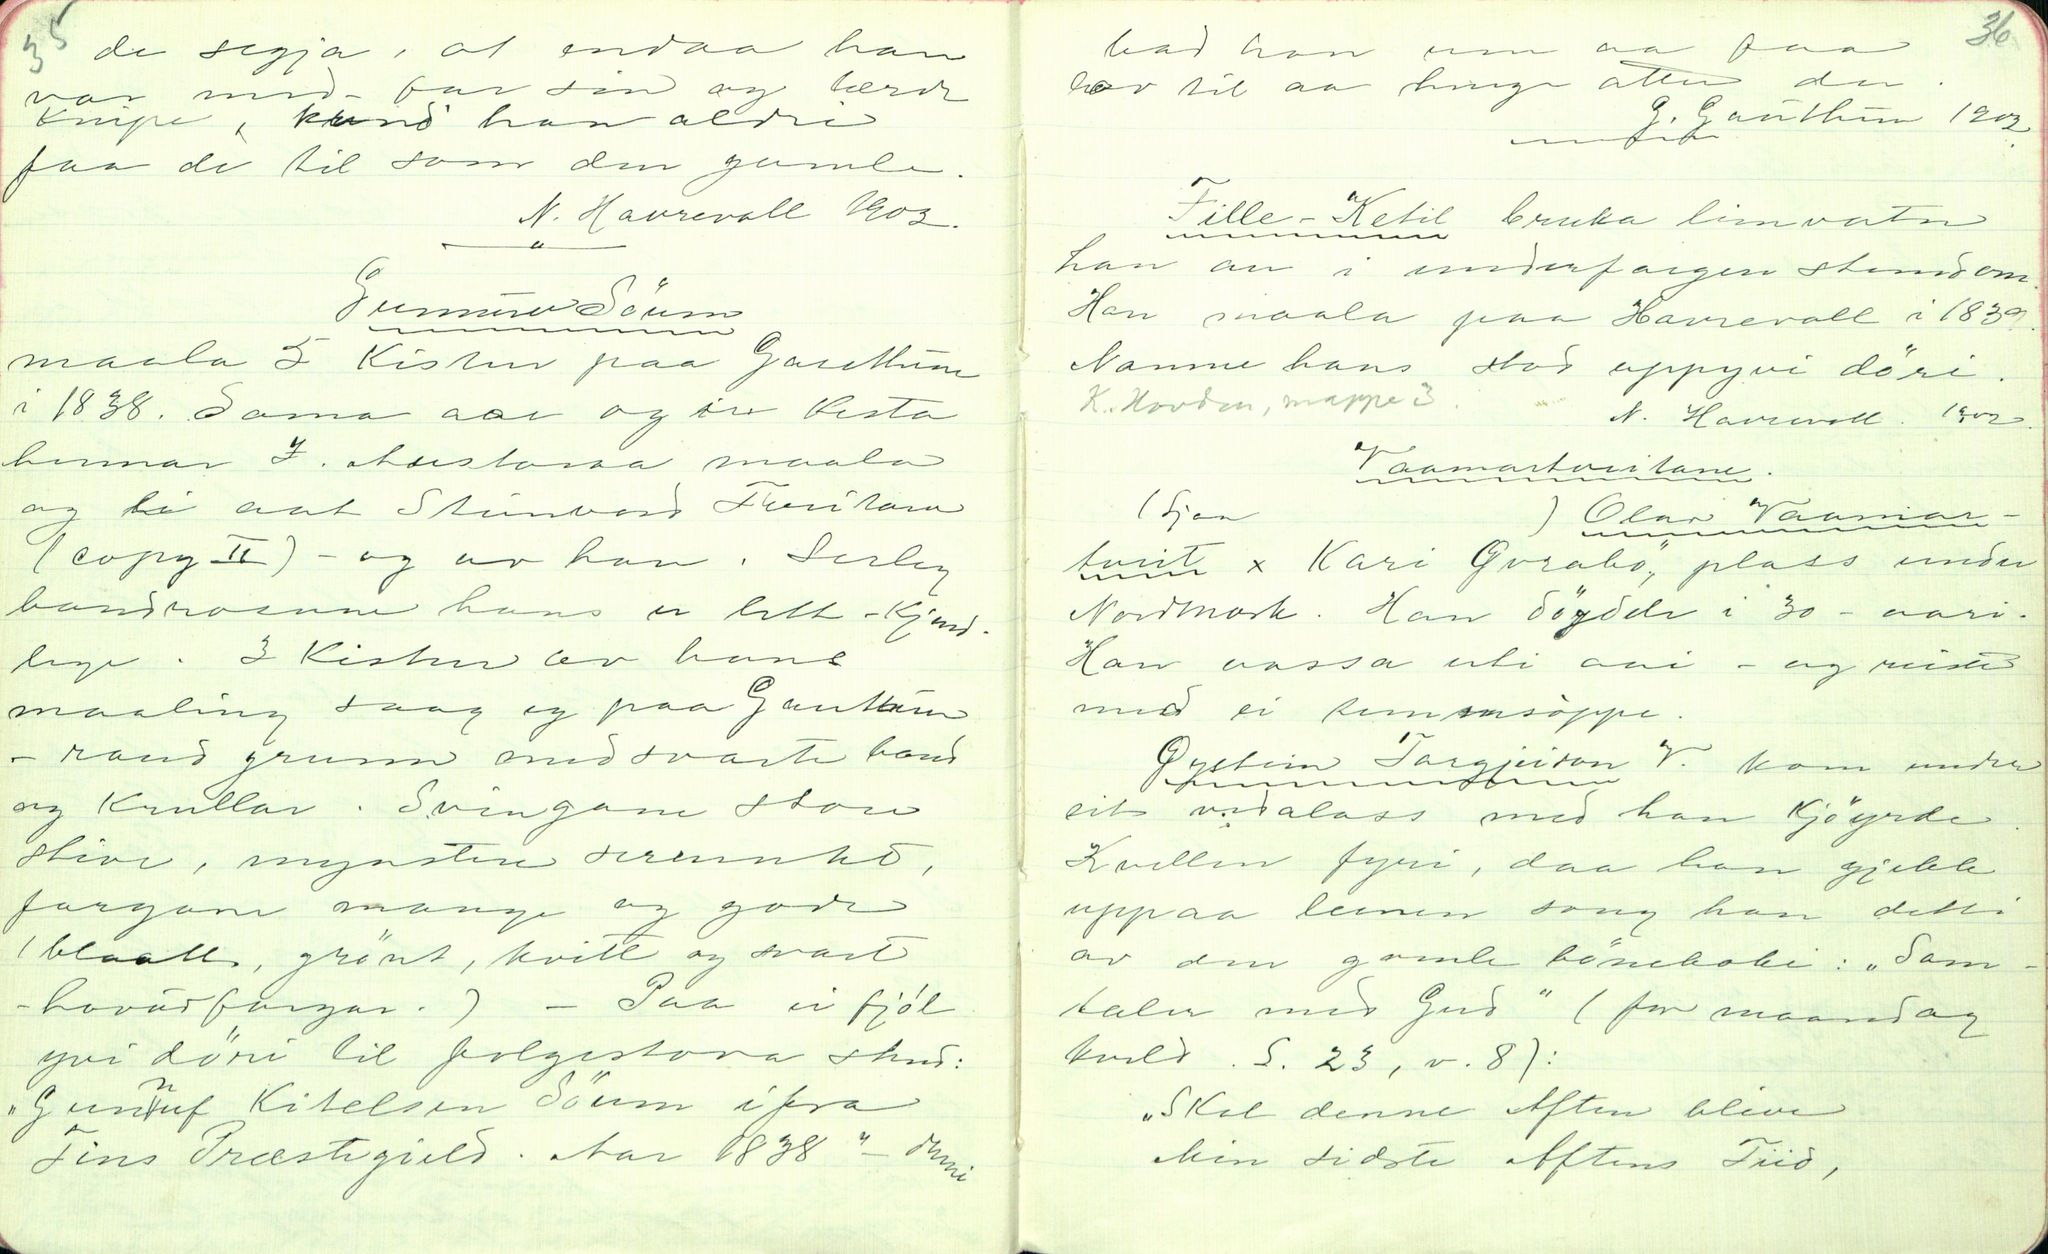 35
de segja, at endaa han
var med far sin og lærde
knipe, kund han aldri
faa de til som den gamle.
N. Haurevall 1902.
Gunnuv Söum
maala 5 Kistur paa Gauthun
i 1838. Sama aar og
maala
og aat Steinvord Tveitane
(copy II) - og av han. Serleg
bandrosune hans er lett-kjend-
lege. 3 Kistur av hans
maaling saag eg paa Gauthun
- raud grunn med svarte band
og Krullar. Svingane store
stive, mynstre serrunkd,
fargane mange og gode
(blaatt, grönt, kvitt og svart
- hovudfargar.) - Paa ei fjöl
yvi döri til folgestova stend:
"Gunnuf Kitelsen Söum ifra
Tins Præstegield. Aar 1838" - denni
36
bad han um aa faa
lov til aa henge atter der.
G. Gauthun 1902.
Fille-Ketil bruka limvatn
han au i underfargen stundom.
Han maala paa Haurevall i 1839.
Namne hans stod uppyvi döri.
K. Hovden, mappe 3.
N. Haurevall. 1902.
Vaamartveitane.
(Sjaa ) Olav Vaamar-
tveit x Kari Gvrabö, plass under
Nordmork. Han döyde i 30-aari.
Han vassa uti aai - og reiste
med ei
Øystein Targjeison V. kom under
eit vedalass med han Kjöyrde.
Kvellen fyri, daa han gjekk
uppaa lemen song han detti
av den gamle böneboki: "Sam-
taler med Gud" (for maandag
kveld. S. 23, v. 8):
"Skal denne Aften blive
Min sidste Aftens Tiid,